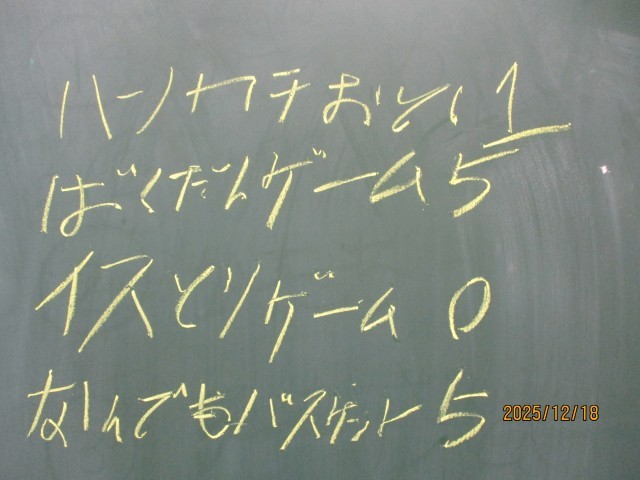 ハンカチおとし 1
ばくだんゲーム 5
イスとりゲーム 0
なんでもバスケット 5
2025/12/18